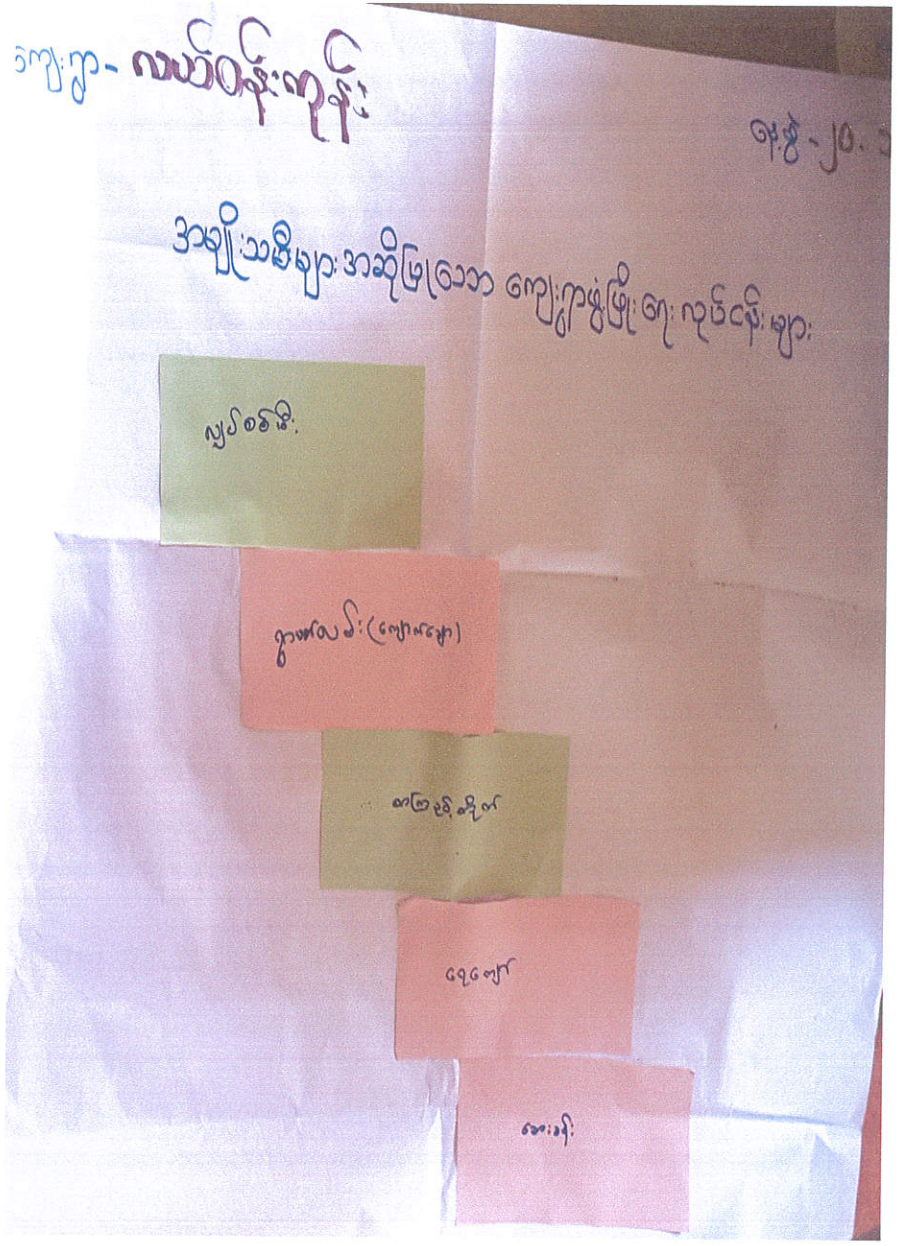 ကျေးရွာ - လယ်ဝန်းကုန်း
နေ့စွဲ - ၂၀.
အမျိုးသမီးများအဆိုပြုသော ကျေးရွာဖွံ့ဖြိုးရေးလုပ်ငန်းများ
လျှပ်စစ်မီး
ရွာပတ်လမ်း(ကျောက်ချော)
စာကြည့်တိုက်
ရေကျော်
ဆေးခန်း